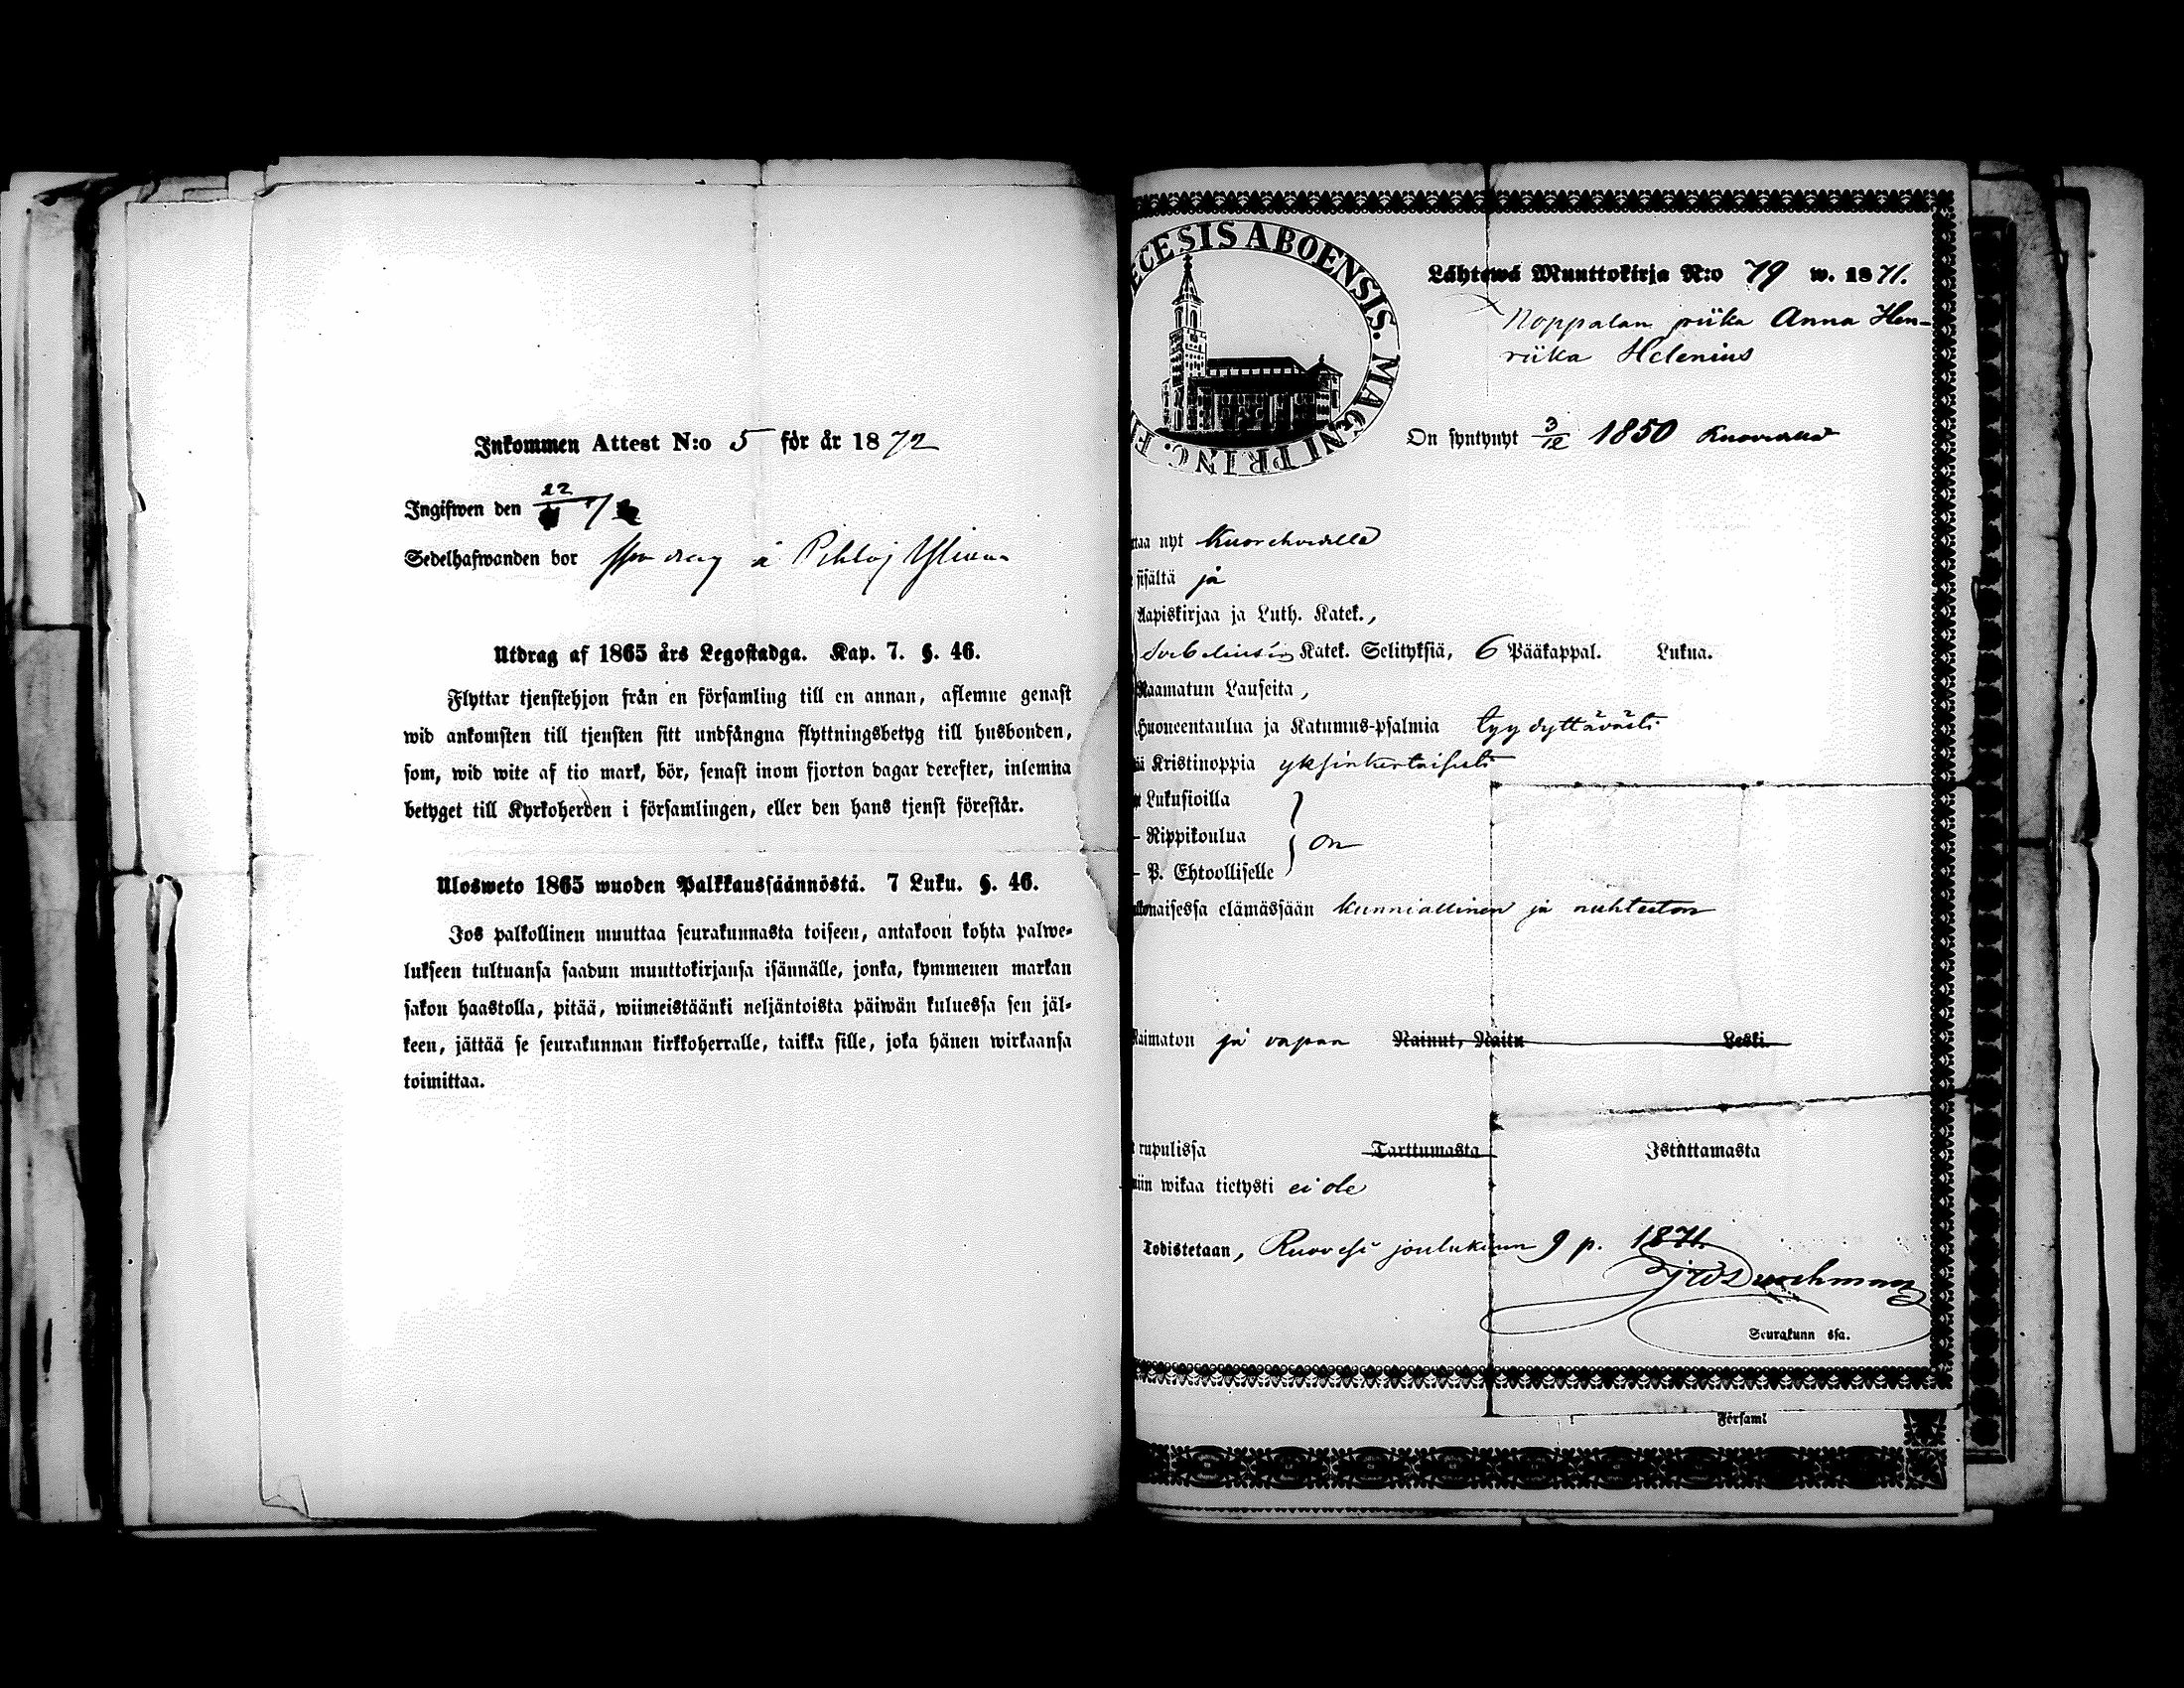 Inkommen Attest N:o 5 för år 1872
Ingifwen den 22
Sedelhafwanden bor å
Utdrag af 1865 års Legostadga. Kap. 7. §. 46.
Flyttar tjenstehjon från en församling till en annan, aflemne genast
wid ankomsten till tjensten sitt undfångna flyttningsbetyg till husbonden,
som, wid wite af tio mark, bör, senast inom fjorton dagar derefter, inlemna
betyget till Kyrkoherden i församlingen, eller den hans tjenst förestår.
Ulosweto 1865 wuoden Palkkaussäännöstä. 7 Luku. §. 46.
Jos palkollinen muuttaa seurakunnasta toiseen, antakoon kohta palwe-
lukseen tultuansa saadun muuttokirjansa isännälle, jonka, kymmenen markan
sakon haastolla, pitää, wiimeistäänki neljäntoista päiwän kuluessa sen jäl-
keen, jättää se seurakunnan kirkkoherralle, taikka sille, joka hänen wirkaansa
toimittaa.
ECESIS ABOENSIS. MAGNI PRINC. F
Lähtewä Muuttokirja N:o 79 w. 1871.
Noppalan piika Anna Hen-
riika Helenius
On syntynyt 3/12 1850
nyt Kuorehvedellä
sisältä ja
Aapiskirjaa ja Luth. Katek.,
Katek. Selityksiä, 6 Pääkappal. Lukua.
Raamatun Lauseita,
Huoneentaulua ja Katumus-psalmia tyydyttävästi
Kristinoppia yksinkertaisesti
Lukusioilla
- Rippikoulua } on
- P. Ehtoolliselle
naisessa elämässään kunniallinen ja nuhteeton
Naimaton ja vapaa Nainut, Naitu Leski.
rupulissa Tarttumasta Istuttamasta
wikaa tietysti ei ole
Todistetaan, Ruovesi joulukuun 9 p. 1871.
Seurakunn ssa.
Församl